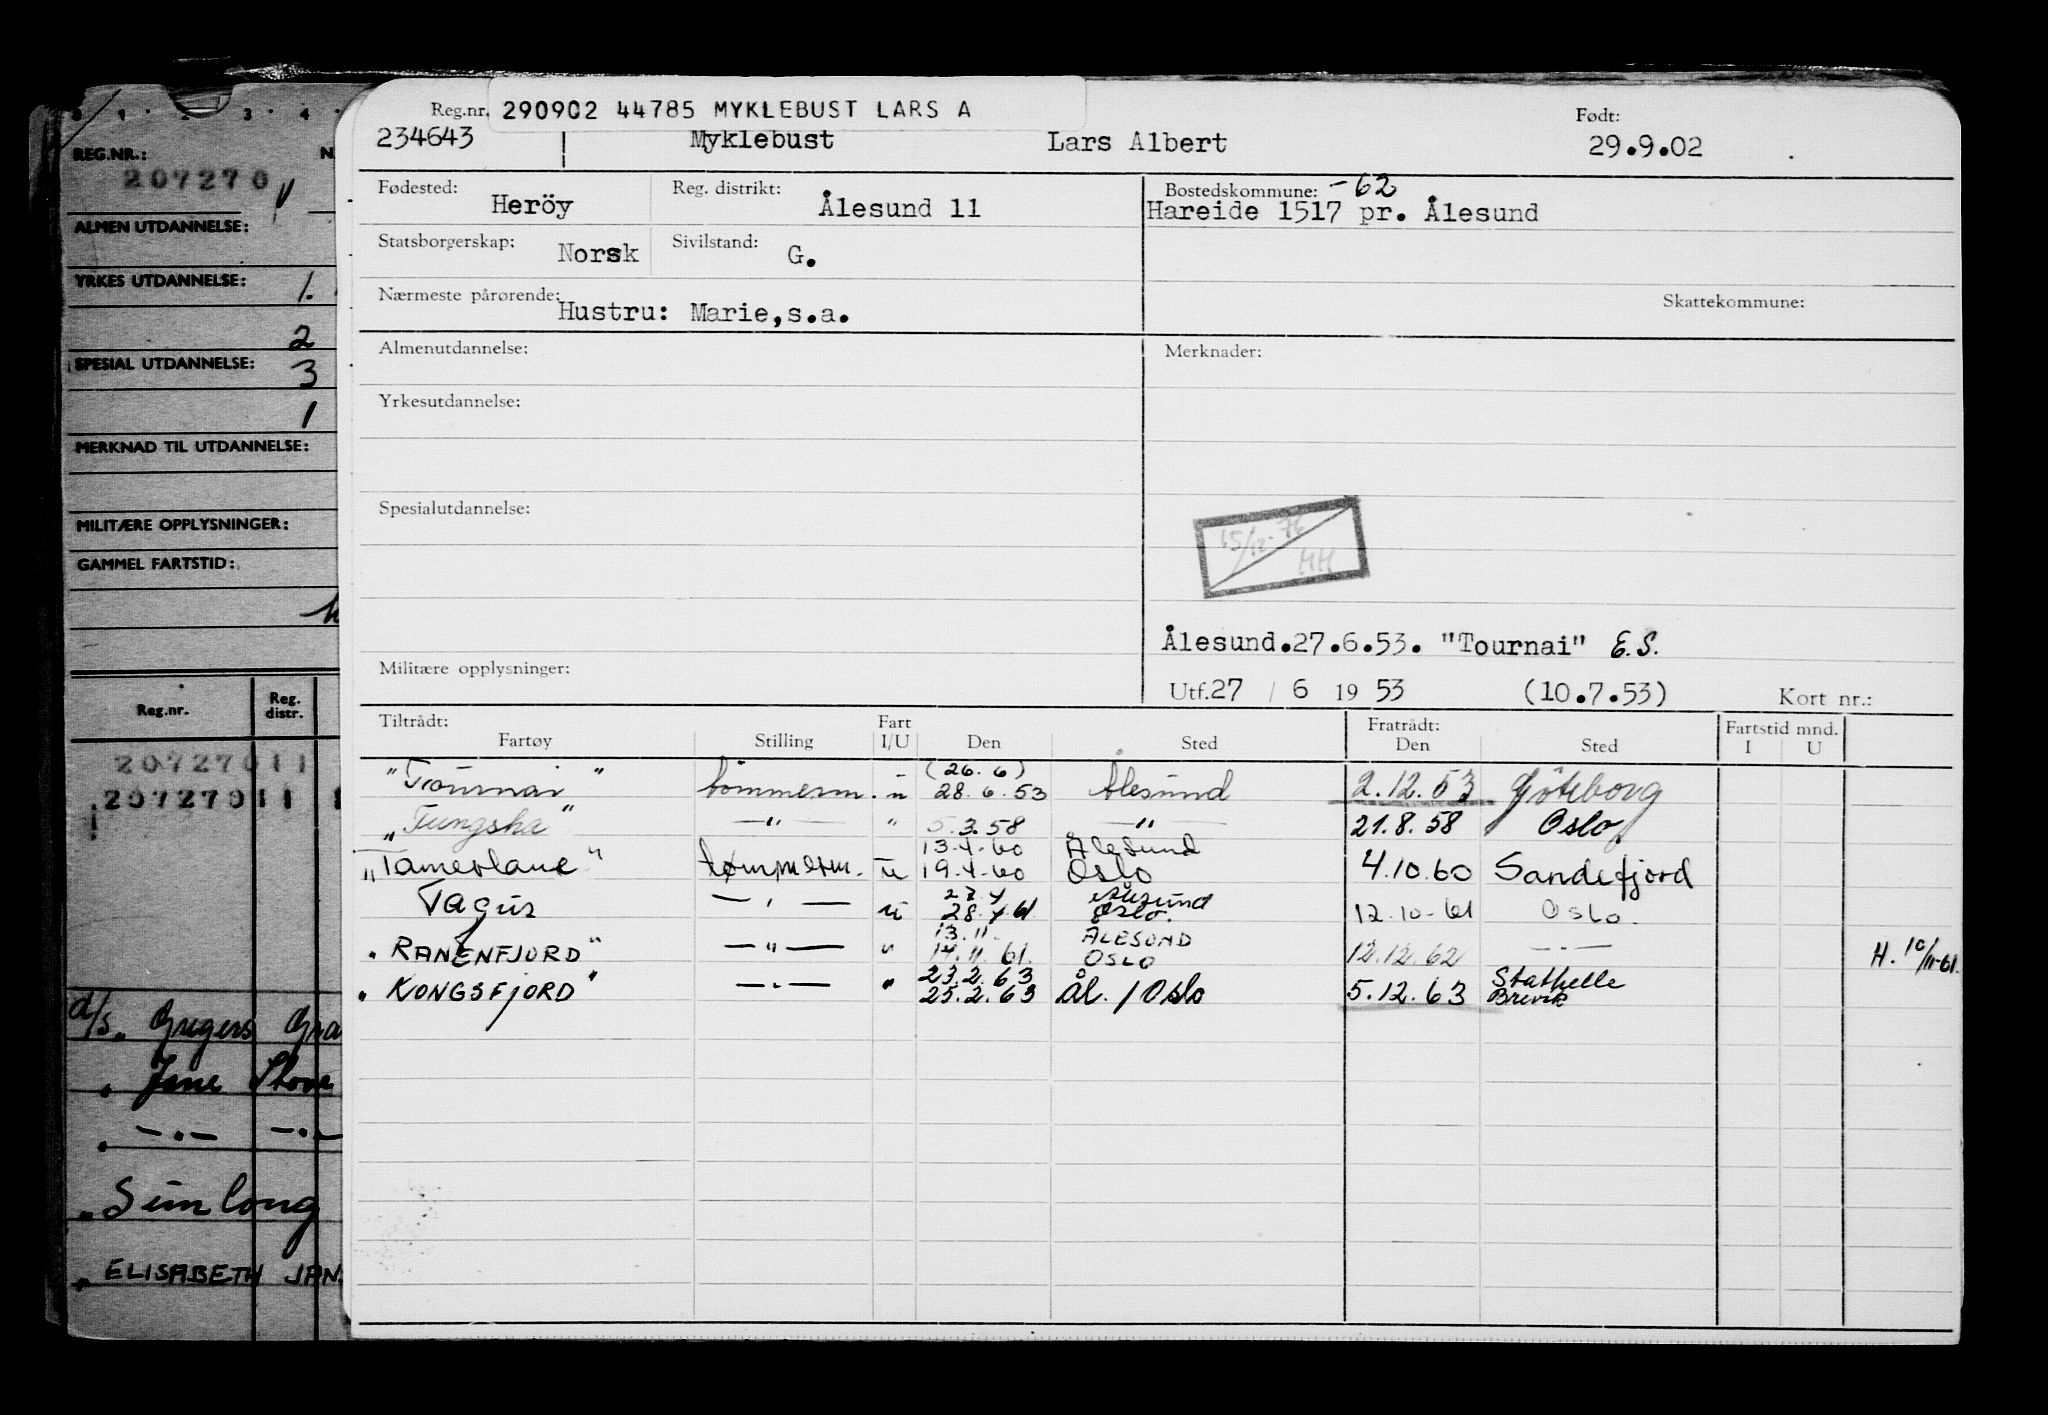 Reg.nr. 290902 44785 MYKLEBUST LARS A
234643 Myklebust Lars Albert Født: 29.9.02
Fødested: Heröy Reg. distrikt: Ålesund 11 Bostedskommune: -62
Hareide 1517 pr. Ålesund
Statsborgerskap: Norsk Sivilstand: G.
Nærmeste pårørende: Hustru: Marie,s.a. Skattekommune:
Almenutdannelse: Merknader:
Yrkesutdannelse:
Spesialutdannelse:
15/12-76
HH
Ålesund.27.6.53. "Tournai" E.S.
Militære opplysninger: Utf.27 / 6 19 53 (10.7.53) Kort nr.:
Tiltrådt: Fart Fratrådt: Fartstid mnd.
Fartøy Stilling I/U Den Sted Den Sted I U
(26.6)
"Tournai" tömmerm. u 28.6.53 Ålesund 2.12.53 Göteborg
"Tungsha" -"- " 5.3.58 -"- 21.8.58 Oslo
13.4.60 Ålesund
"Tamerlane" tømmerm. u 19.4.60 Oslo 4.10.60 Sandefjord
27.4 Ålesund
Tagus -"- u 28.4.61 Oslo. 12.10.61 Oslo.
13.11. ÅLESUND
"RANENFJORD" -"- " 14.11.61. OSLO 12.12.62 -"- H. 10/11-61.
23.2.63 Stathelle
"KONGSFJORD" -"- " 25.2.63 Ål. / Oslo 5.12.63 Brevik
1 2 3 4
REG.NR.: N
207270
ALMEN UTDANNELSE:
YRKES UTDANNELSE: 1.
2
SPESIAL UTDANNELSE: 3
1
MERKNAD TIL UTDANNELSE:
MILITÆRE OPPLYSNINGER:
GAMMEL FARTSTID:
Reg.nr. Reg. distr.
20727011
20727011
d/s " Gregers Gra
" Jane Stove
" -"- -"-
" Sunlong
" ELISABETH JAN